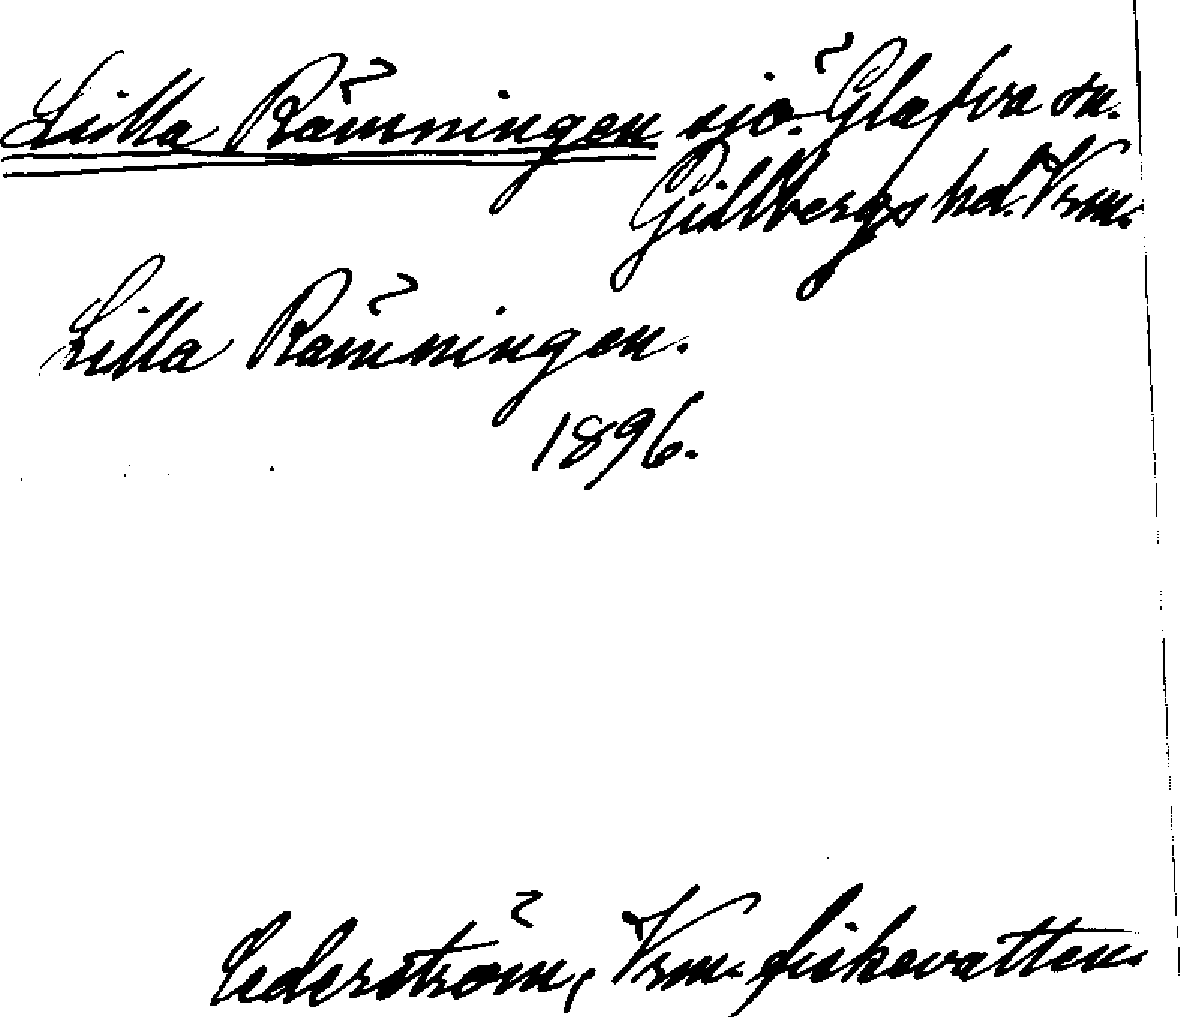 Lilla Rämningen sjö. Glafva sn.
Gillbergs hd. Vrm.
Lilla Rämningen.
1896.
Cederström, Vrm. fiskevatten.